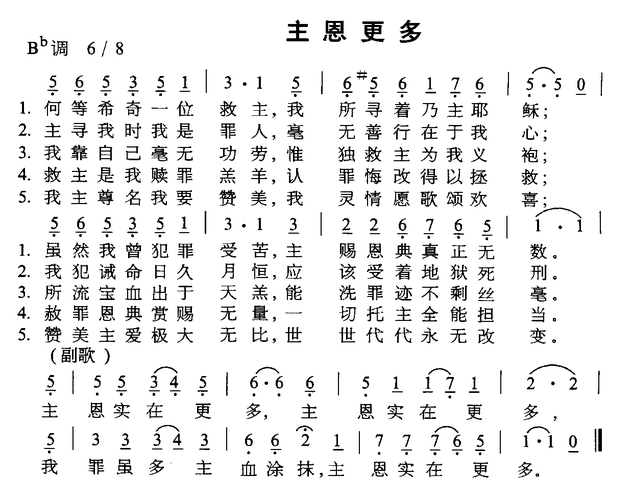 主恩更多
B♭调 6/8
5 6 5 3 5 1 | 3 · 1 5 | 6 #5 6 1 7 6 | 5 · 5 0
1. 何等希奇一位 救主,我 所寻着乃主耶 稣;
2. 主寻我时我是 罪人,毫 无善行在于我 心;
3. 我靠自己毫无 功劳,惟 独救主为我义 袍;
4. 救主是我赎罪 羔羊,认 罪悔改得以拯 救;
5. 我主尊名我要 赞美,我 灵情愿歌颂欢 喜;
5 6 5 3 5 1 | 3 · 1 3 | 2 2 6 7 6 5 | 1 · 1
1. 虽然我曾犯罪 受苦,主 赐恩典真正无 数。
2. 我犯诫命日久 月恒,应 该受着地狱死 刑。
3. 所流宝血出于 天羔,能 洗罪迹不剩丝 毫。
4. 赦罪恩典赏赐 无量,一 切托主全能担 当。
5. 赞美主爱极大 无比,世 世代代永无改 变。
(副歌)
5 | 5 5 3 4 5 | 6 · 6 6 | 5 1 1 1 7 1 | 2 · 2
主 恩实在 更 多, 主 恩实在 更 多,
5 | 3 3 3 4 3 | 6 6 2 1 | 7 7 7 6 5 | 1 · 1 0 ‖
我 罪虽多 主 血涂抹,主 恩实在 更 多。